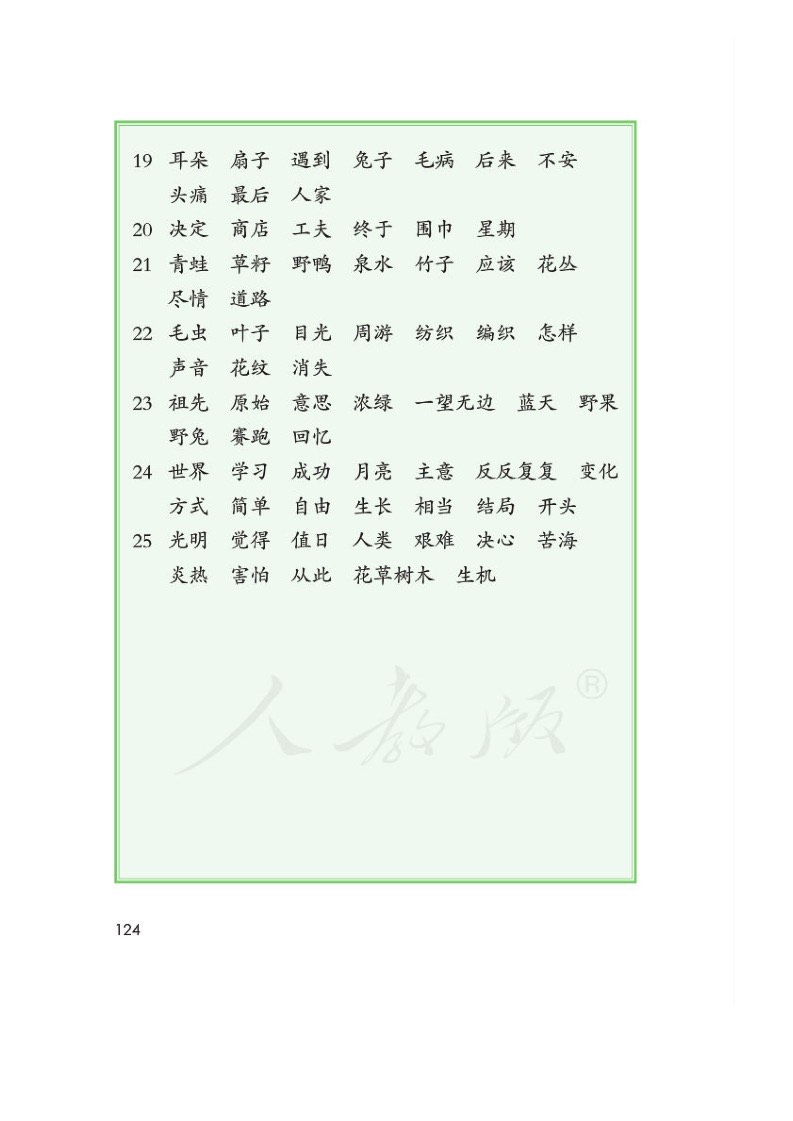 19 耳朵 扇子 遇到 兔子 毛病 后来 不安
头痛 最后 人家
20 决定 商店 工夫 终于 围巾 星期
21 青蛙 草籽 野鸭 泉水 竹子 应该 花丛
尽情 道路
22 毛虫 叶子 目光 周游 纺织 编织 怎样
声音 花纹 消失
23 祖先 原始 意思 浓绿 一望无边 蓝天 野果
野兔 赛跑 回忆
24 世界 学习 成功 月亮 主意 反反复复 变化
方式 简单 自由 生长 相当 结局 开头
25 光明 觉得 值日 人类 艰难 决心 苦海
炎热 害怕 从此 花草树木 生机
人教版®
124